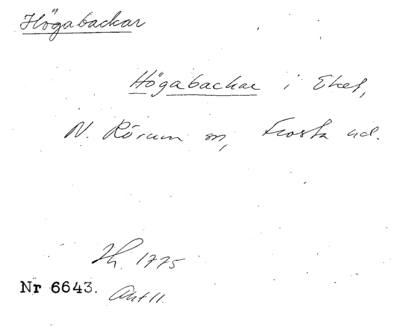 Högabackar
Högabackar i Ekef,
N. Rörum sn, Frosta hd.
Sk. 1775
Nr 6643.
Akt 11.